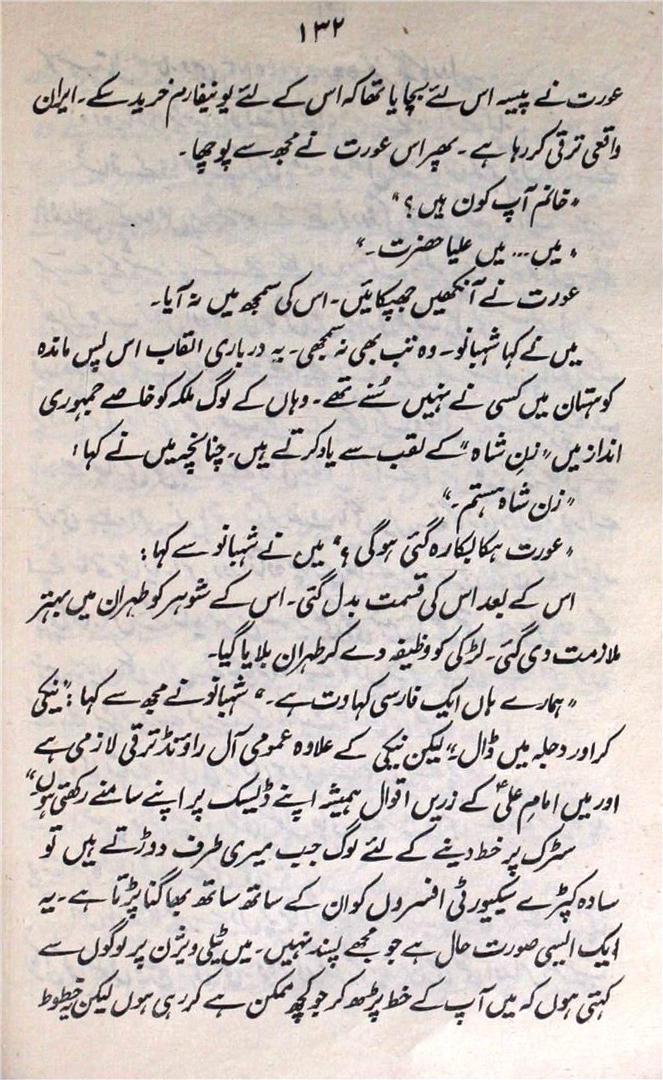 ۱۳۲
عورت نے پیسہ اس لئے بچایا تھا کہ اس کے لئے یونیفارم خرید سکے۔ ایران
واقعی ترقی کر رہا ہے۔ پھر اس عورت نے مجھ سے پوچھا۔
"خانم آپ کون ہیں؟"
"میں... میں علیا حضرت۔"
عورت نے آنکھیں جھپکائیں۔ اس کی سمجھ میں نہ آیا۔
میں نے کہا شہبانو۔ وہ تب بھی نہ سمجھی۔ یہ درباری القاب اس پس ماندہ
کوہستان میں کسی نے نہیں سُنے تھے۔ وہاں کے لوگ ملکہ کو خاصے جمہوری
انداز میں "زنِ شاہ" کے لقب سے یاد کرتے ہیں۔ چنانچہ میں نے کہا:
"زن شاہ ہستم۔"
"عورت ہکا بکا رہ گئی ہو گی؟" میں نے شہبانو سے کہا:
اس کے بعد اس کی قسمت بدل گئی۔ اس کے شوہر کو طہران میں بہتر
ملازمت دی گئی۔ لڑکی کو وظیفہ دے کر طہران بلایا گیا۔
"ہمارے ہاں ایک فارسی کہاوت ہے۔" شہبانو نے مجھ سے کہا: "نیکی
کر اور دجلہ میں ڈال۔" لیکن نیکی کے علاوہ عمومی آل راؤنڈ ترقی لازمی ہے
اور میں امام علیؑ کے زریں اقوال ہمیشہ اپنے ڈیسک پر اپنے سامنے رکھتی ہوں"
سڑک پر خط دینے کے لئے لوگ جب میری طرف دوڑتے ہیں تو
سادہ کپڑے سیکیورٹی افسروں کو ان کے ساتھ ساتھ بھاگنا پڑتا ہے۔ یہ
ایک ایسی صورت حال ہے جو مجھے پسند نہیں۔ میں ٹیلی ویژن پر لوگوں سے
کہتی ہوں کہ میں آپ کے خط پڑھ کر جو کچھ ممکن ہے کر رہی ہوں لیکن یہ خطوط